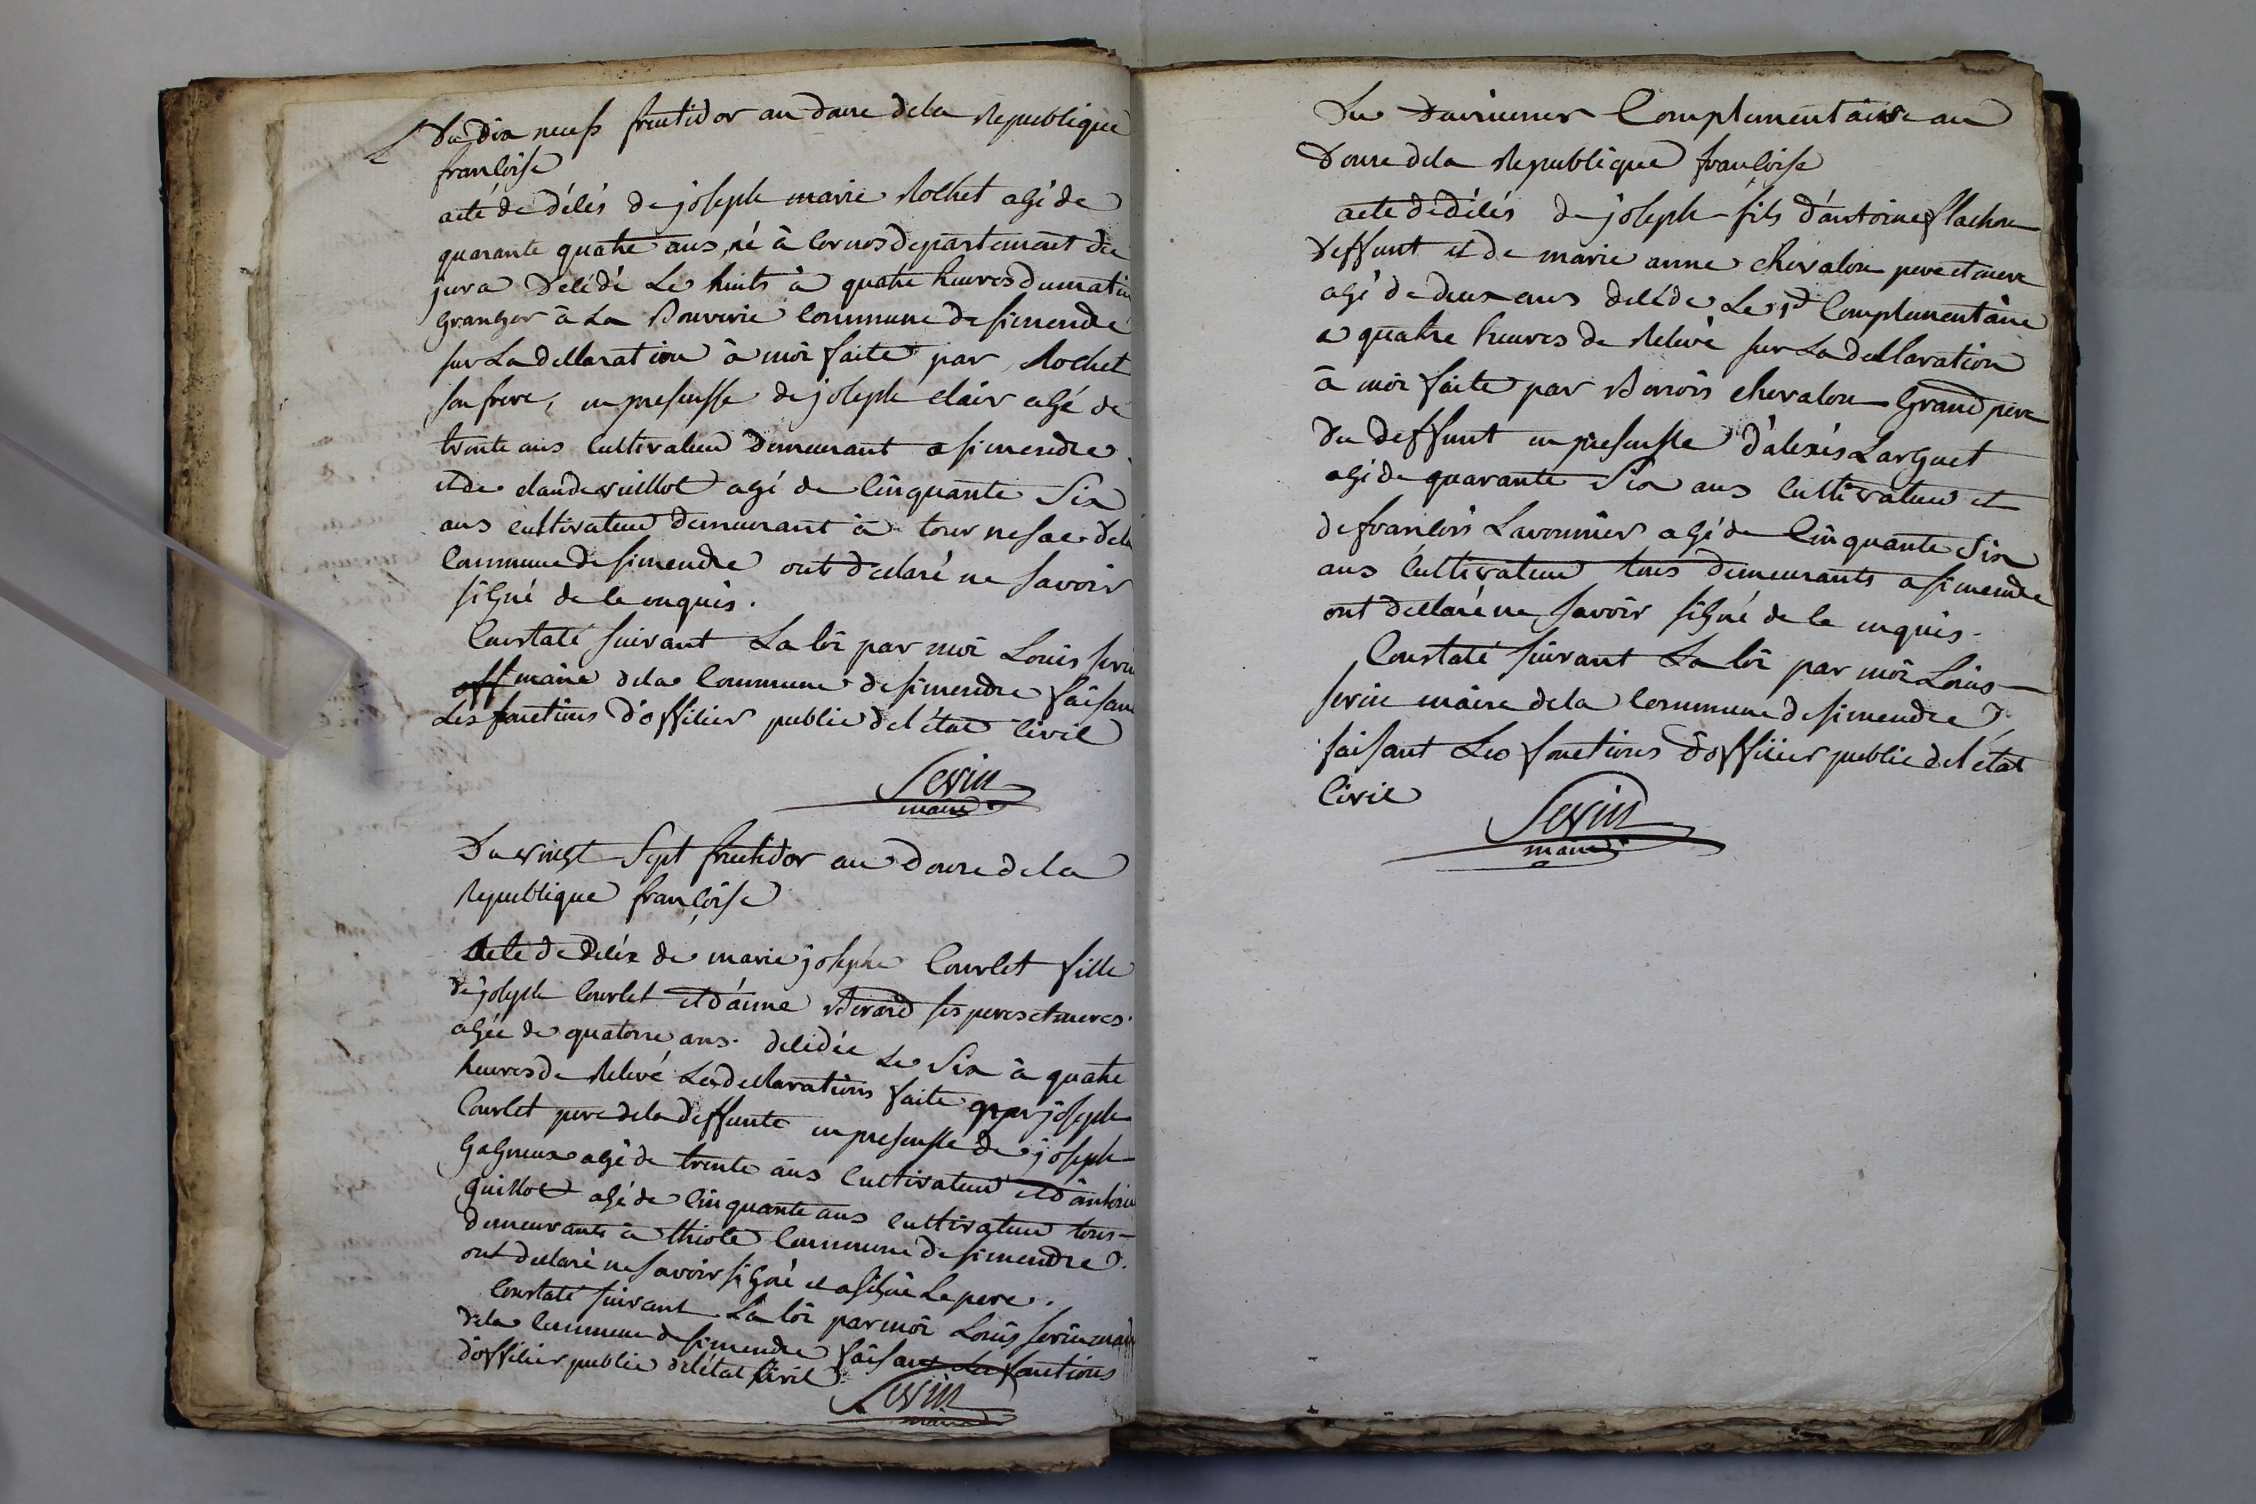 Du Dix neufs fructidor an douze de la Republique
françoise
acte de délés de joseph marie Rochet agé de
quarante quatre ans, né à Cernos departement du
jura délédé Le huits à quatre heures du matin
Granger à La Bouverie Commune de simendre
sur La dellaration à moi faite par Rochet
son frere, en presensse de joseph clair agé de
trente ans Cultivateur demeurant a simendre
et de claude vuillot agé de Cinquante Six
ans cultivateur demeurant à tournesac de la
Commune de simendre ont declaré ne savoir
signé de le enquis.
Constaté suivant La loi par moi Louis serin
off maire de la Commune de simendre faisant
Les fonctions d'officier public de l'état Civil
Sevin
maire
Du vingt Sept fructidor an douze de la
Republique françoise
Acte de deléx de marie josephe Courlet fille
de joseph Courlet et d'anne Berard ses peres et meres
agée de quatorze ans. delédée Le Six à quatre
heures de Relevé Les dellarations faite par joseph
Courlet pere de la deffunte en presensse de joseph
Gagneux agé de trente ans Cultivateur et d'antoine
Guillot agé de Cinquante ans Cultivateur tous
demeurants à thiole Commune de simendre
ont dellaré ne savoir signé et a signé Le pere.
Constaté suivant La loi par moi Louis serin maire
de la Commune de simendre faisant Les fonctions
d'officier public de l'état Civil
Sevin
maire
Du Duxiemes Complementaire an
Douze de la Republique françoise
acte de délés de joseph fils d'antoine flachon
deffunt et de marie anne chevalon pere et mere
agé de deux ans delédé Le 1er Complementaire
a quatre heures de Relevé sur La dellaration
à moi faite par Benois chevalon Grand pere
du deffunt en presensse d'alexis Larguet
agé de quarante Six ans Cultivateur et
de françois Lavonnier agé de Cinquante Six
ans Cultivateur tous demeurants a simendre
ont dellaré ne savoir signé de le enquis.
Constaté suivant La loi par moi Louis
serin maire de la Commune de simendre
faisant Les fonctions d'officier public de l'état
Civil
Sevin
maire